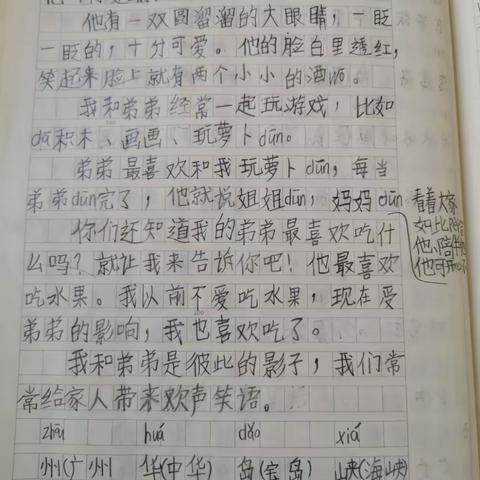 他有一双圆溜溜的大眼睛，一眨
一眨的，十分可爱。他的脸白里透红，
笑起来脸上就有两个小小的酒窝。
我和弟弟经常一起玩游戏，比如
dā积木、画画、玩萝卜dūn。
弟弟最喜欢和我玩萝卜dūn，每当
弟弟dūn完了，他就说姐姐dūn，妈妈dūn
看着大家
如此陪
他小陪伴
他可开心
你们还知道我的弟弟最喜欢吃什
么吗？就让我来告诉你吧！他最喜欢
吃水果。我以前不爱吃水果，现在受
弟弟的影响，我也喜欢吃了。
我和弟弟是彼此的影子，我们常
常给家人带来欢声笑语。
zhōu huá dǎo xiá
州(广州 华(中华) 岛(宝岛) 峡(海峡)